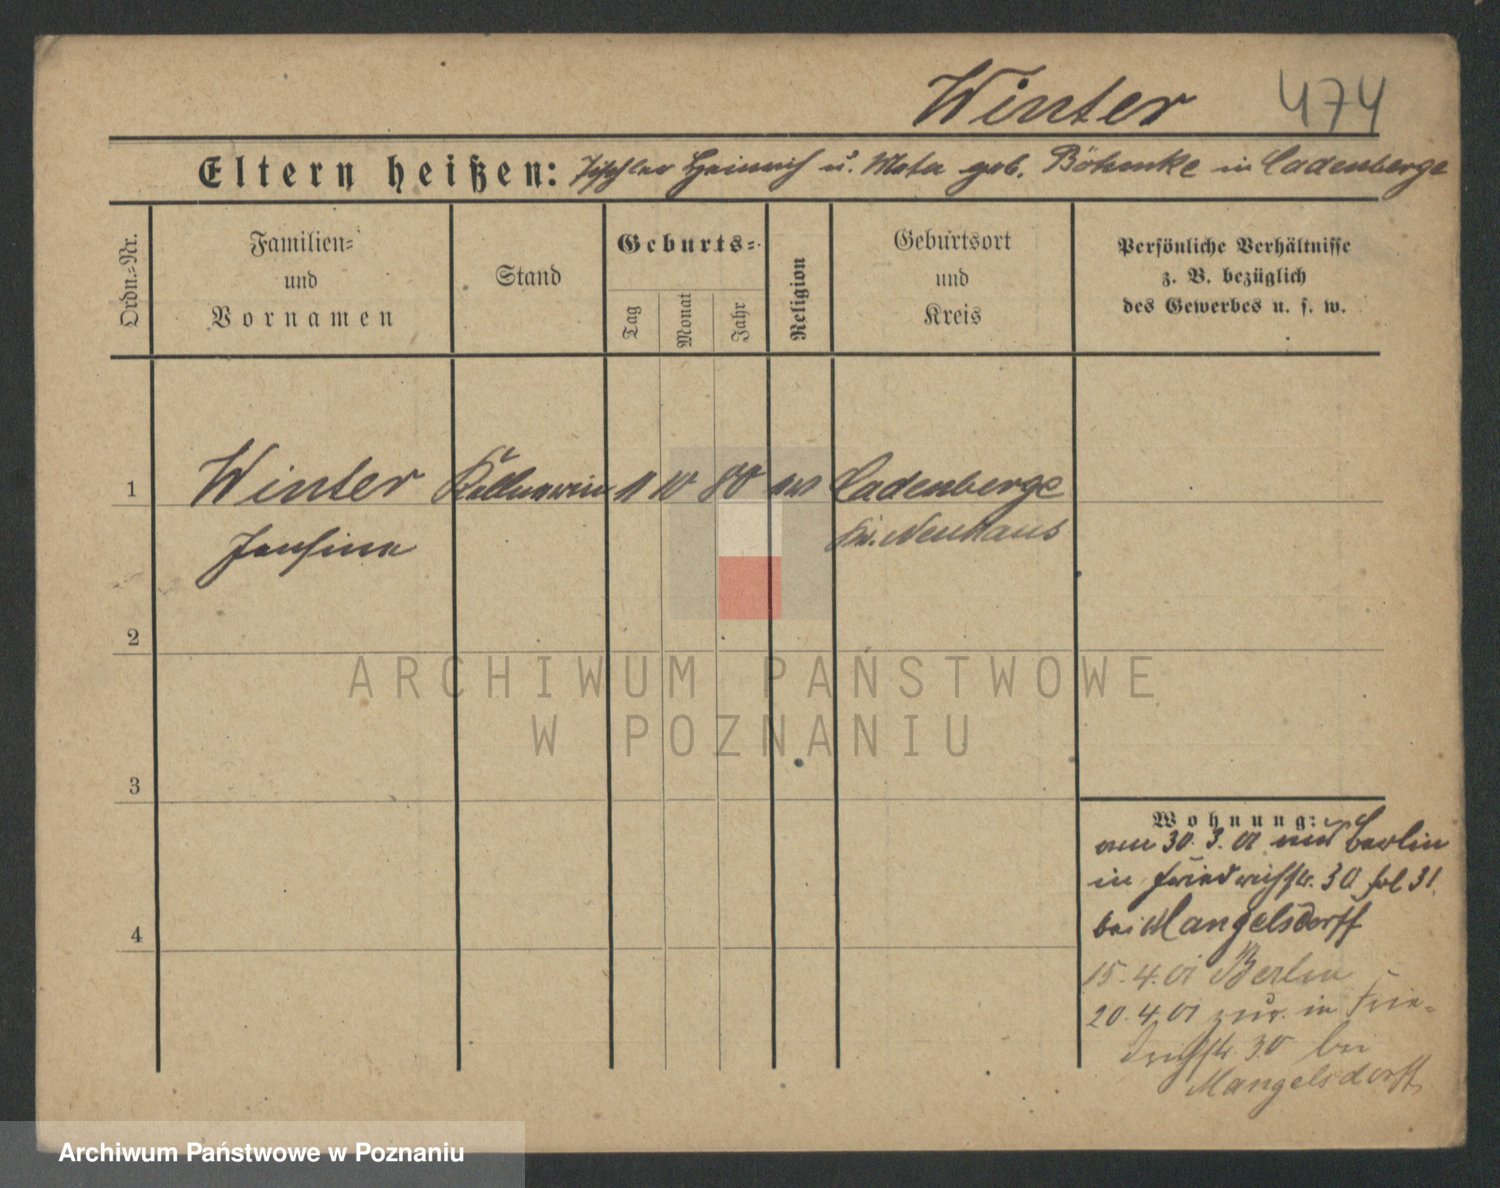 Winter 474
Eltern heißen: Tischler Heinrich u. Meta geb. Böhmke in Cadenberge
Ordn.-Nr.
Familien-
und
Vornamen
Stand
Geburts-
Tag
Monat
Jahr
Religion
Geburtsort
und
Kreis
Persönliche Verhältnisse
z. B. bezüglich
des Gewerbes u. s. w.
1 Winter Kellnerin 11 10 80 ev Cadenberge
Kr. Neuhaus
2
3
4
Wohnung:
am 30. 3. 01 aus Berlin
in Friedrichstr. 30 fol 31.
bei Mangelsdorff
15. 4. 01 Berlin
20. 4. 01 zur. in Frie-
drichstr. 30 bei
Mangelsdorff
ARCHIWUM PAŃSTWOWE
W POZNANIU
Archiwum Państwowe w Poznaniu